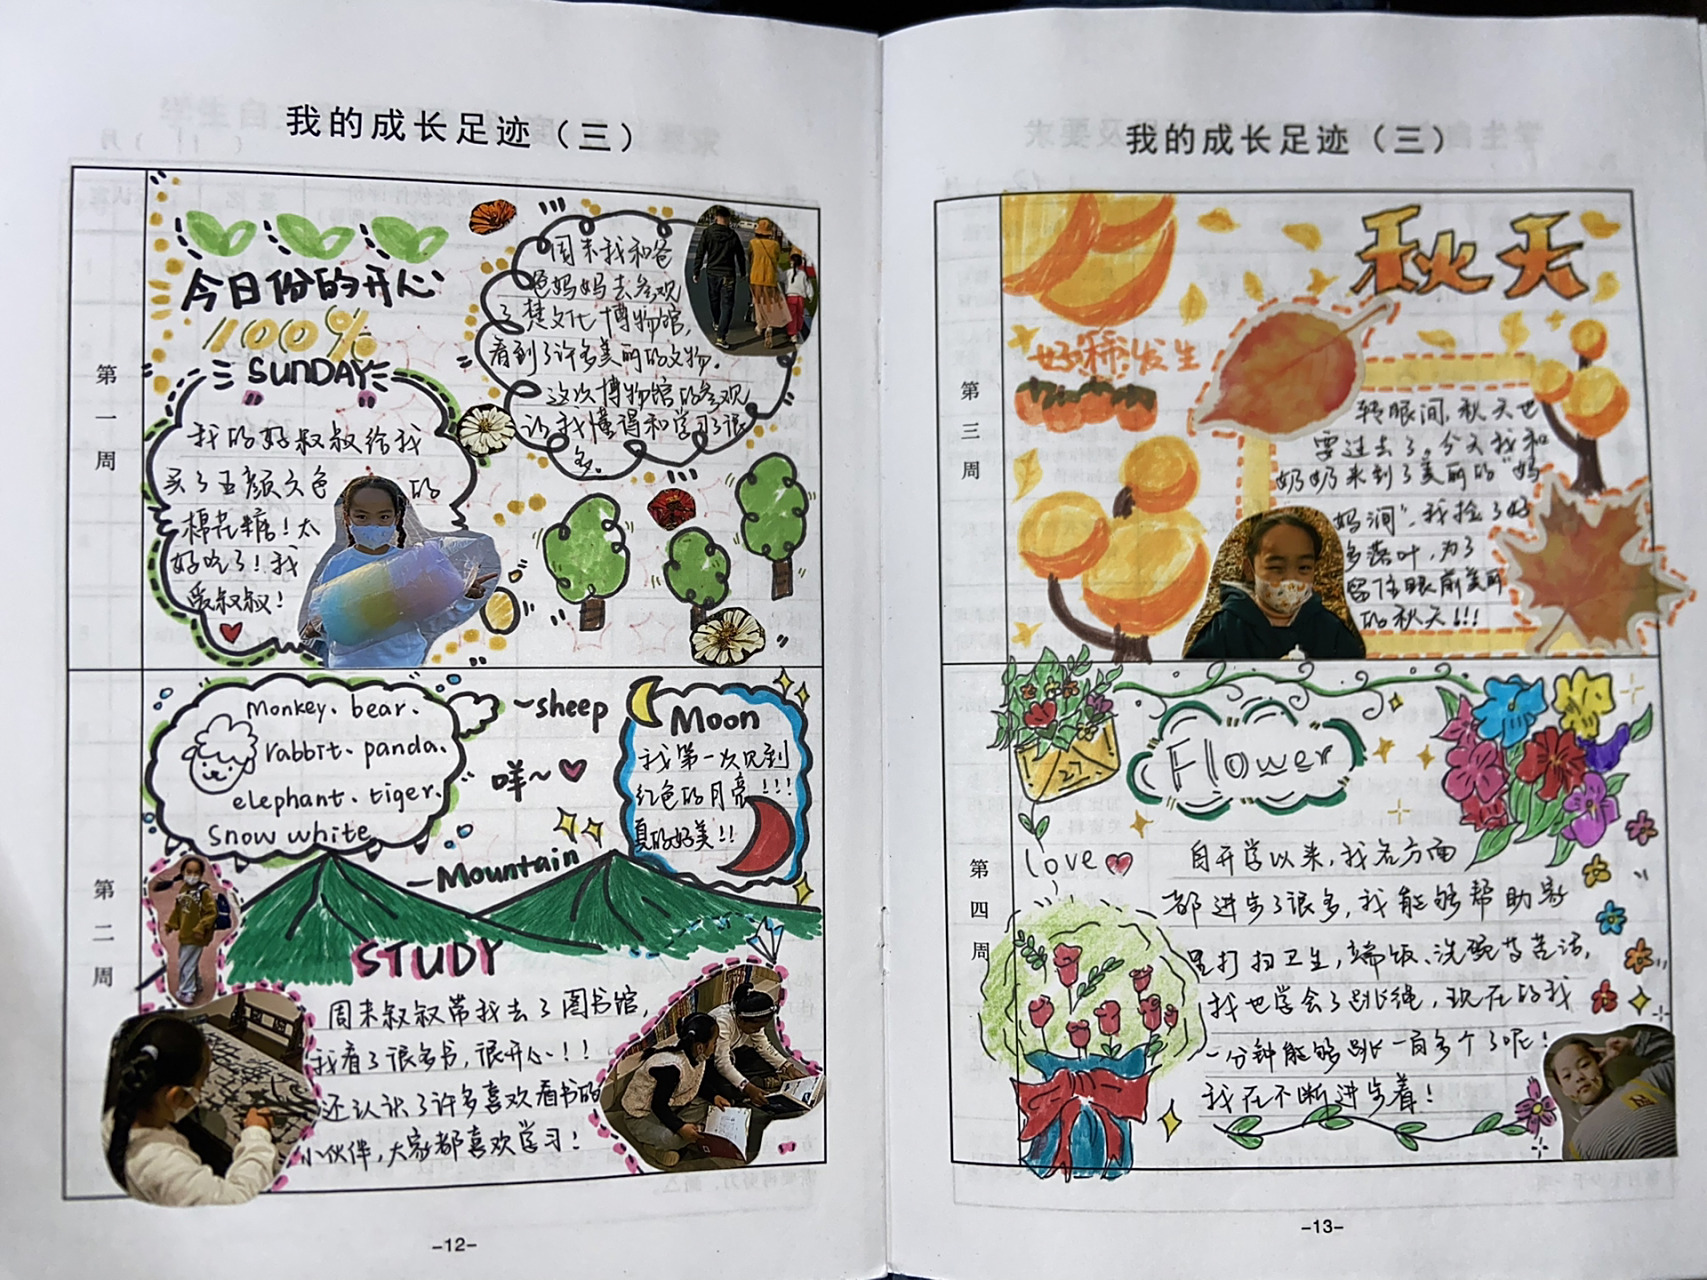 我的成长足迹（三）
第一周
今日份的开心
100%
SUNDAY
我的好叔叔给我
买了五颜六色的
棉花糖！太
好吃了！我
爱叔叔！
周末我和爸
爸妈妈去参观
了楚文化博物馆，
看到了许多美丽的文物。
这次博物馆的参观
让我懂得和学习了很
多。
第二周
monkey、bear、
rabbit、panda、
elephant、tiger、
snow white
~sheep
咩~
Moon
我第一次见到
红色的月亮!!!
真的好美!!
Mountain
STUDY
周末叔叔带我去了图书馆，
我看了很多书，很开心！！
还认识了许多喜欢看书的
小伙伴，大家都喜欢学习！
-12-
我的成长足迹（三）
第三周
秋天
好柿发生
转眼间，秋天也
要过去了。今天我和
奶奶来到了美丽的“妈
妈润”，我捡了好
多落叶，为了
留住眼前美丽
的秋天!!!
第四周
27.
Flower
love
自开学以来，我各方面
都进步了很多，我能够帮助家
里打扫卫生，端饭、洗碗等苦活，
我也学会了跳绳，现在的我
一分钟能够跳一百多个了呢！
我在不断进步着！
-13-